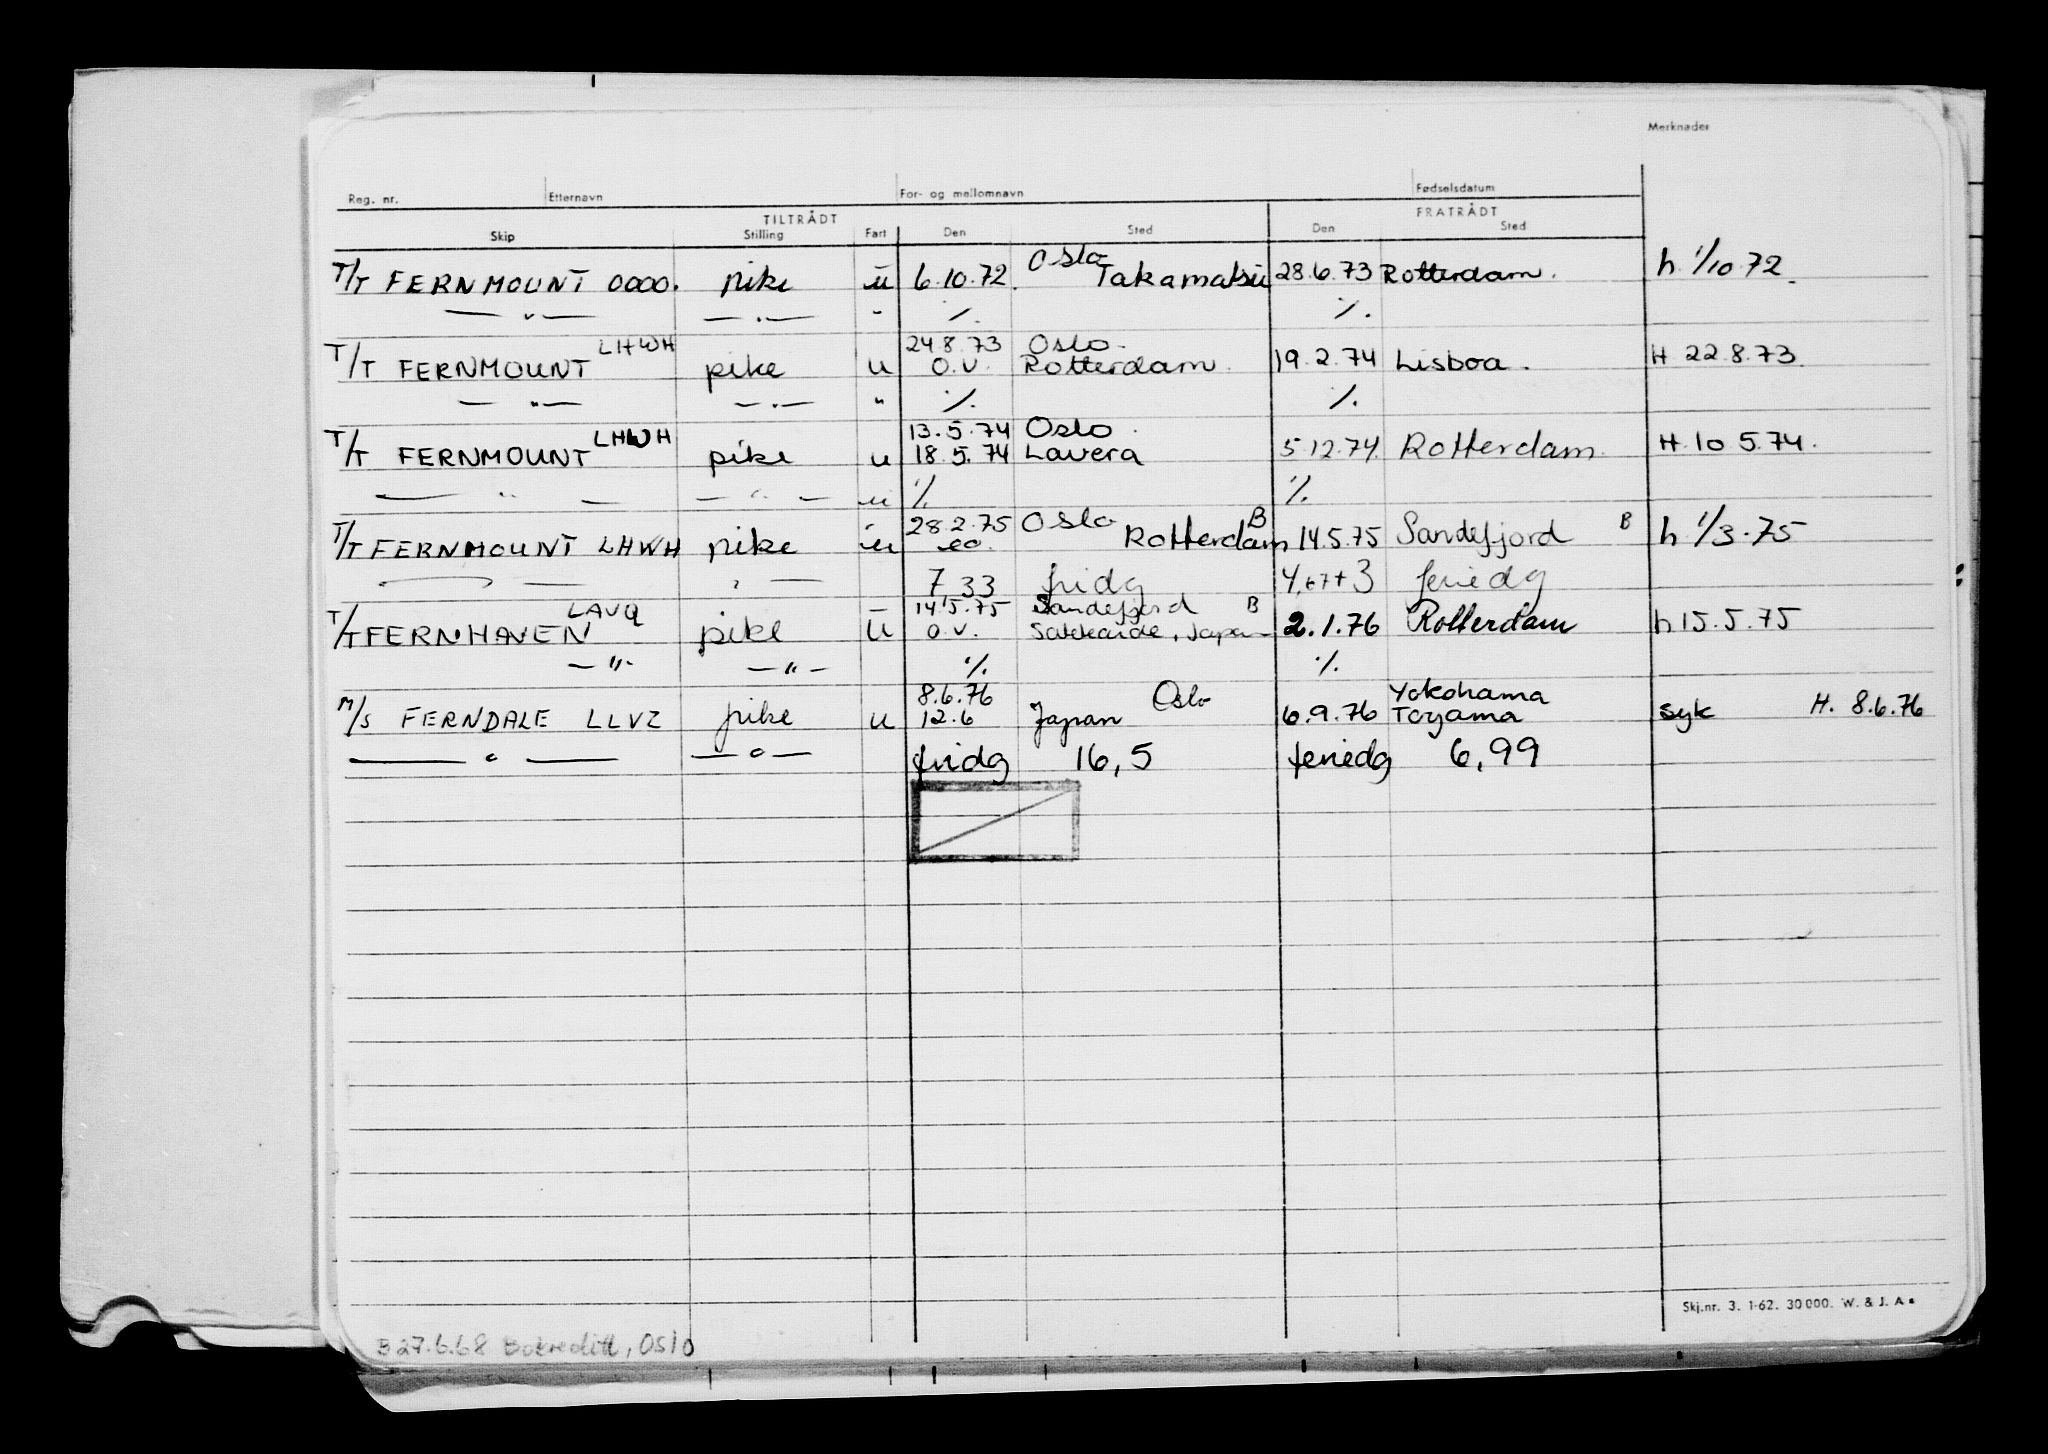 Merknader
Reg. nr. Etternavn For- og mellomnavn Fødselsdatum
TILTRÅDT FRATRÅDT
Skip Stilling Fart Den Sted Den Sted
T/T FERNMOUNT 0000. pike u 6.10.72. Oslo Takamatsu 28.6.73 Rotterdam. h. 1/10 72.
— " — — " — " % %
T/T FERNMOUNT LHWH pike u 24 8.73 Oslo. 19.2.74 Lisboa. H 22.8.73.
o.v. Rotterdam.
— " — — " — " % %
T/T FERNMOUNT LHWH pike u 13.5.74 Oslo. 5.12.74. Rotterdam. H. 10 5.74.
18.5.74 Lavera
— " — — " — u % %
T/T FERNMOUNT LHWH pike u 28.2.75 Oslo Rotterdam B 14.5.75 Sandefjord B h 1/3.75
— " — " — 7 33 fridg 4,67+3 feriedg
T/T FERNHAVEN LAVQ pike u 14.5.75 Sandefjord B 2.1.76 Rotterdam h 15.5.75
o.v. Japan
— " — — " — % %
M/S FERNDALE LLVZ pike u 8.6.76 Oslo 6.9.76 Yokohama syk H. 8.6.76
12.6 Japan Toyama
— " — — " — fridg 16,5 feriedg 6,99
Skj.nr. 3. 1-62. 30 000. W. & J. A
B 27.6.68 Oslo